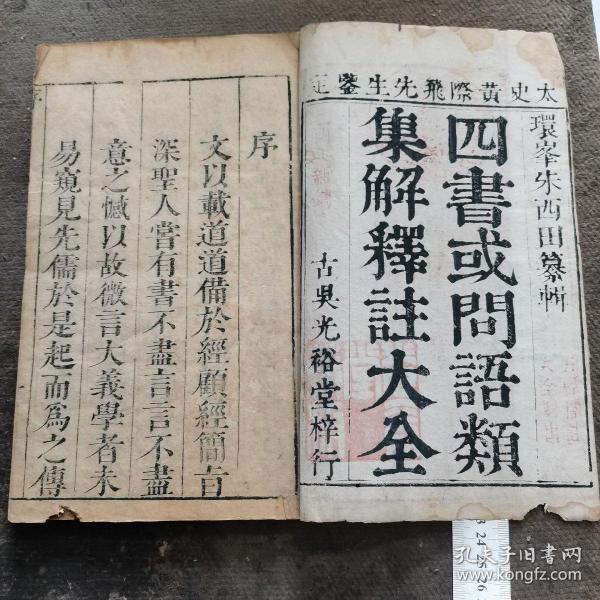 太史黃際飛先生鑒正
環峯朱西田纂輯
四書或問語類
集解釋註大全
古吳光裕堂梓行
序
文以載道道備於經顧經簡旨
深聖人嘗有書不盡言言不盡
意之憾以故微言大義學者未
易窺見先儒於是起而為之傳
23 24 25 26
孔夫子旧书网
www.kongfz.com